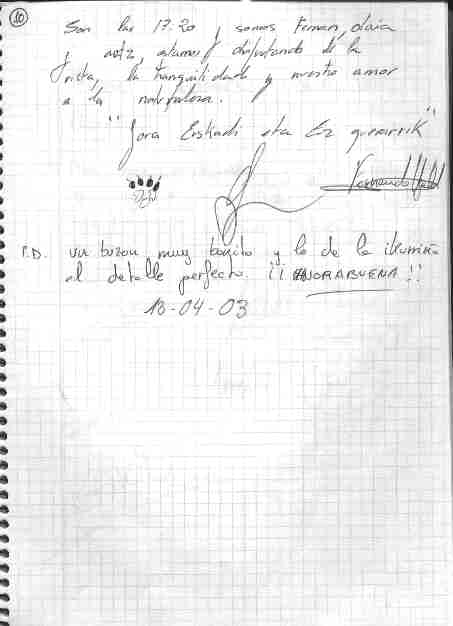 10
Son las 17.20 y somos Fernan, olaia
y aotz, estamos disfrutando de la
vista, la tranquilidad y nuestro amor
a la naturaleza.
"Gora Euskadi eta Ez guerarrik"
P.D. un buzon muy bonito y lo de la
el detalle perfecto. ¡¡ENORABUENA!!
13-04-03